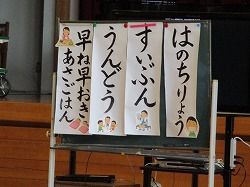 はのちりょう
すいぶん
うんどう
早ね早おき
あさごはん